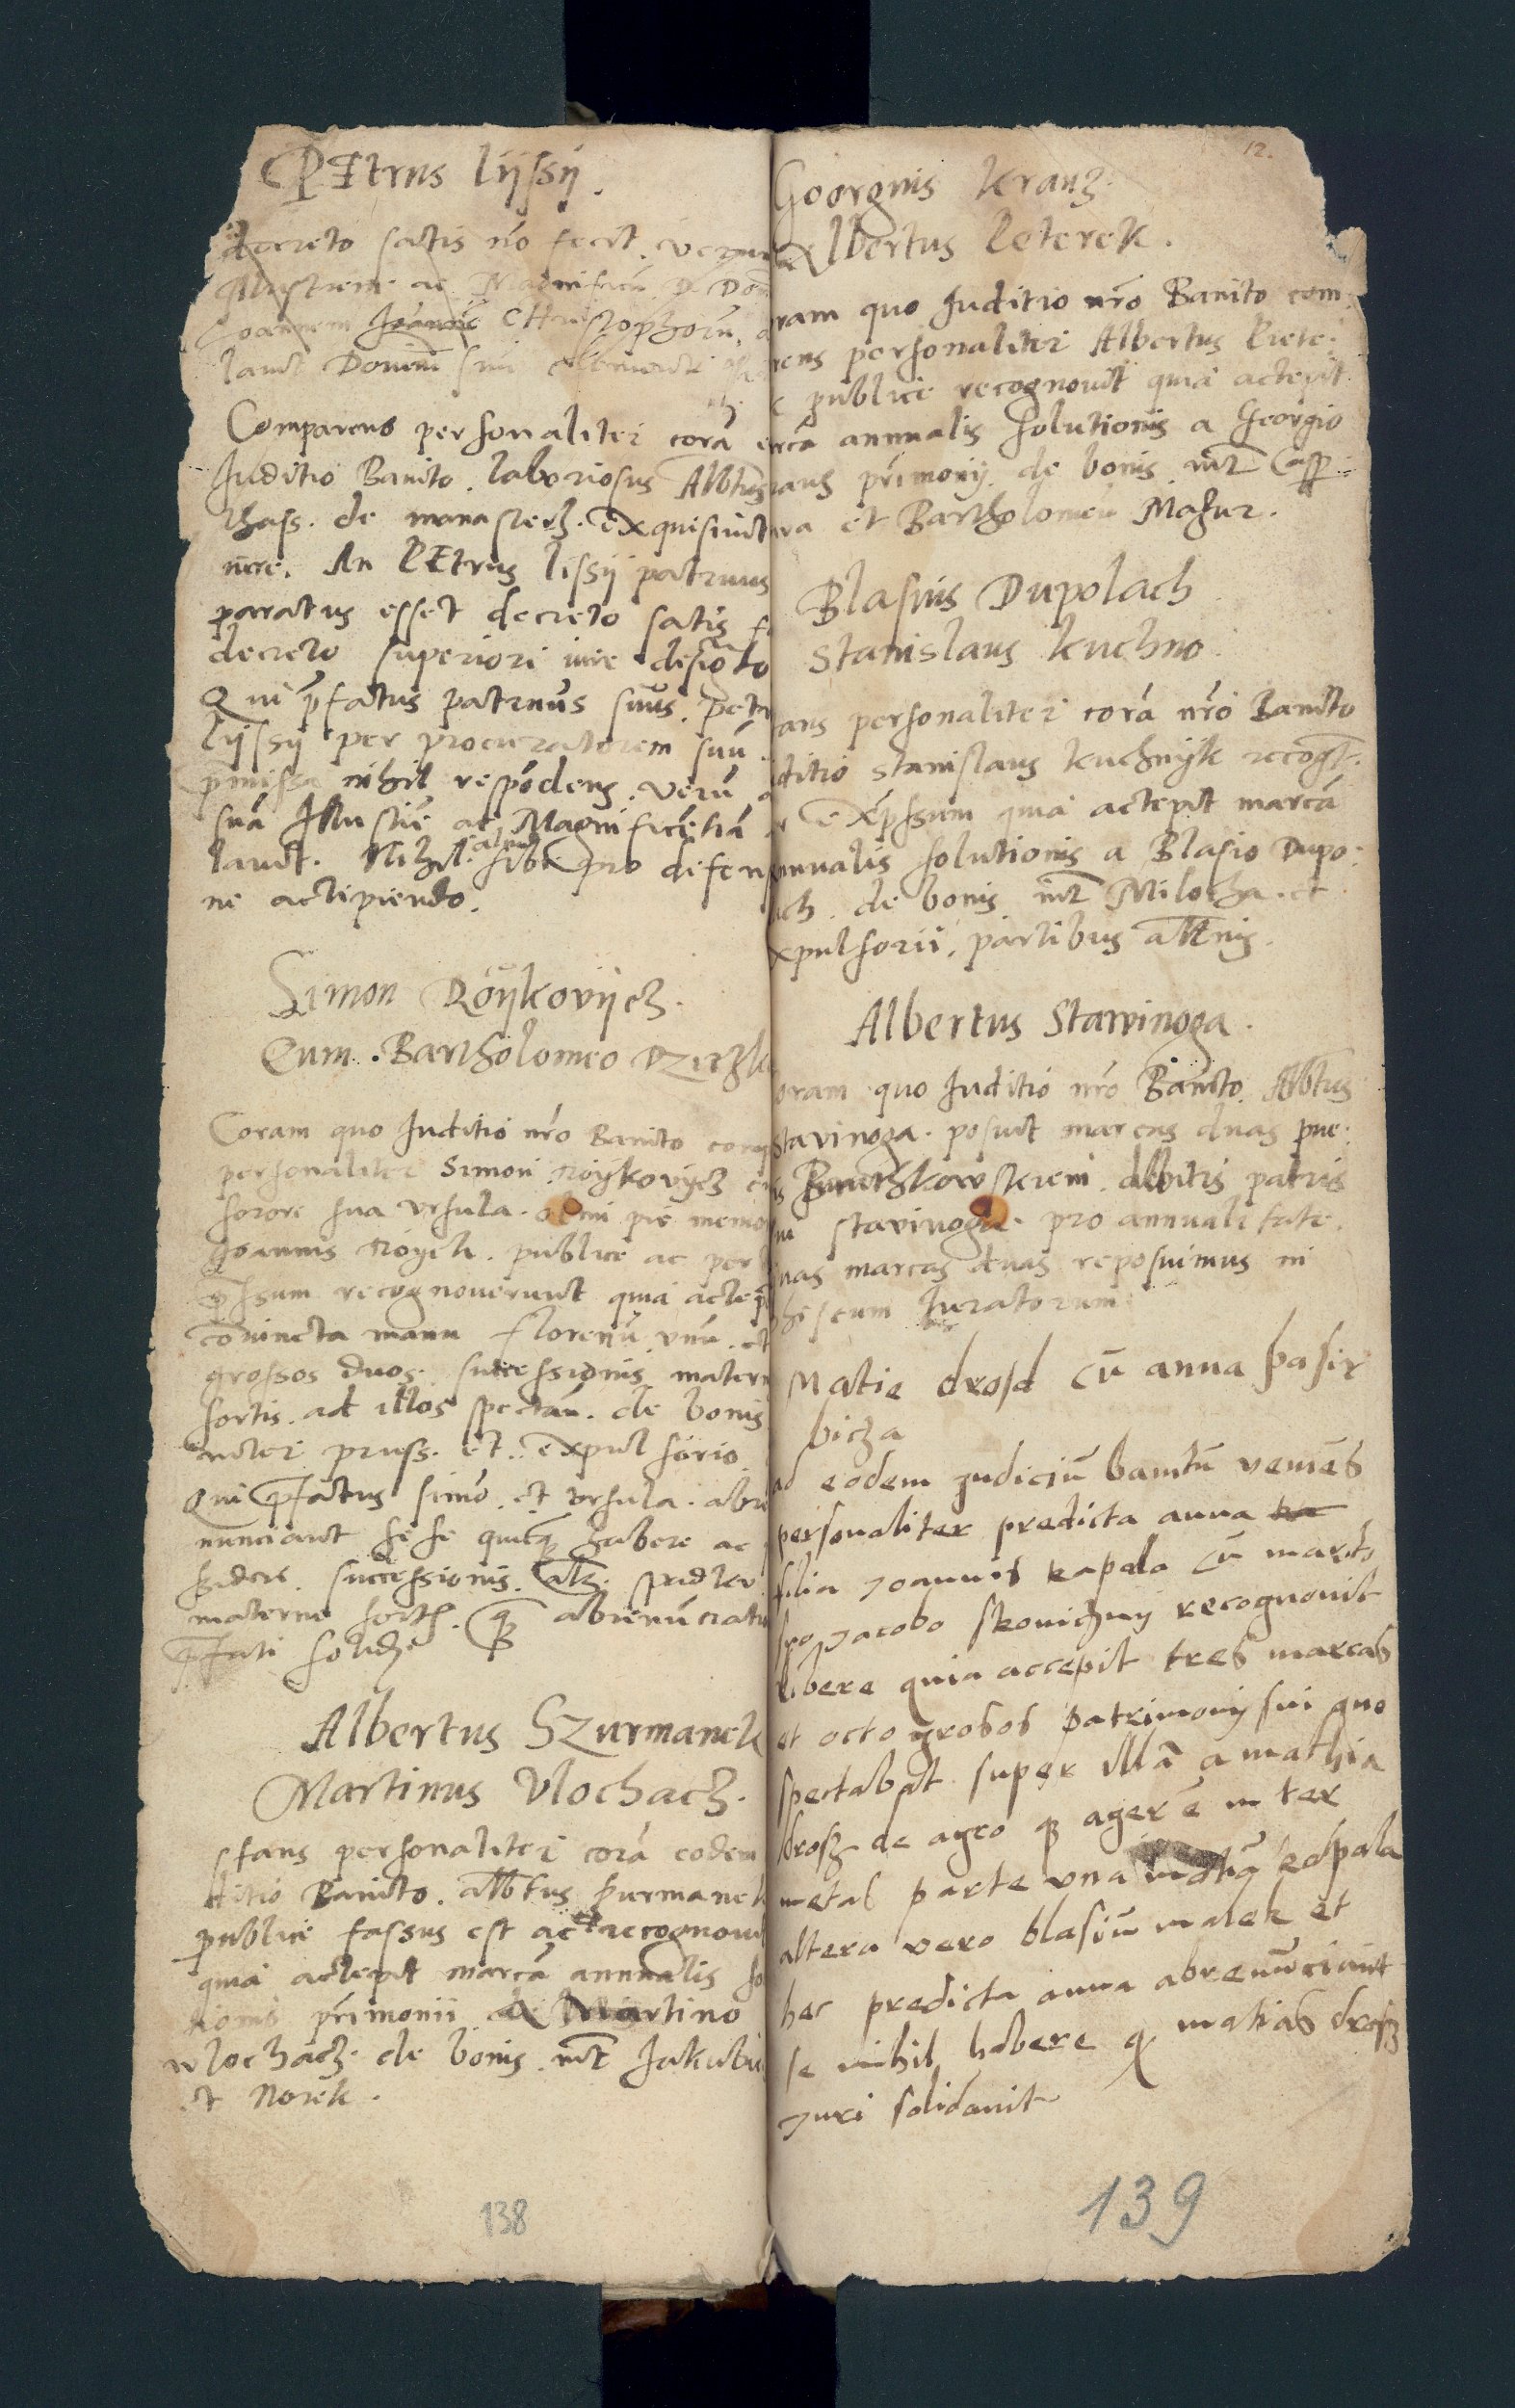 PEtrus lijssij.
decreto satis nõ fecit. verum
Illustrem ac Magnificũ D. Dom
Joannem Joannẽ CHristophorũ.
Comparens personaliter corã
Juditio Banito. laboriosus Albtus
thass. de monasterz. exquisiuit
iure. An PEtrus lissij patruus
paratus esset decreto satis
decreto superiori iure
Qui p̃fatus patruus suus. petr
lijssij per procuratorem suũ
p̃missa nihil respõdens. verũ
suã Illustrẽ ac Magnificẽtiã
lauit. Nihil. aliud sibi pro defens
ne actipiendo.
Simon Roijkovijcz.
Cum. Bartholomeo Dzierzk
Coram quo Juditio nr̃o Banito comp
personaliter Simon Roijkovijcz
sorore sua vrsula. olim pie memo
Joannis Roijek. publice ac per
p̃ssum recognouerunt quia actep
coniuncta manu florenũ vnũ. et
grossos duos. suctessionis matern
sortis. ad illos spectan. de bonis
inter pruss. et. expulsorio
Qui p̃fatus simõ. et vrsula. abre
nunciant se se quicq̃ habere ac
sidere. suctessionis. als. spadku
materne sortis. abrenũciatio
p̃fati
Albertus Szurmanek
Martinus Vlochacz.
stans personaliter corã eodem
ditio Banito. Albtus surmanek
publice fassus est ac recognouit
quia actepit marcã annualis so
tionis pr̃imonii a Martino
wlochacz. de bonis int̃ Jakubi
et Norek.
138
12.
Georgius kranz.
Albertus Peterek.
ram quo Juditio nr̃o Banito com:
rens personaliter Albertus Piete:
k publice recognouit quia actepit
marcã annualis solutionis a Georgio
kraus pr̃imonij. de bonis int̃ Casp:
ra et Bartholomeũ Mazur.
Blasius Dupolach
Stanislaus kuchno.
tans personaliter corã nr̃o Banito
ditio Stanislaus kuchnijk recogt.
r expssum quia actepit marcã
nnualis solutionis a Blasio Dupo:
ach. de bonis int̃ Milocha. et
xpulsorii. partibus ab altnis.
Albertus Stawinoga.
oram quo Juditio nr̃o Banito. Albtus
stavinoga. posuit marcas duas pue:
is Pruchkowskiem. albtis patris
stavinoga. pro annualitate.
uas marcas duas reposuimus in
phiscum Juratorum.
Matie drosd cũ anna pasir
bicza
ad eodem judiciũ banitũ veniẽs
personaliter predicta anna ka
filia joannis kapala cũ marito
suo jacobo skouiczny recognouit
libere quia accepit tres marcas
et octo grosos patrimonij sui que
spectabat super illã a mathia
drosz de agro q̃ ager ẽ in ter
metas parte vna matiã kospala
altera vero blasiũ malek et
hec predicta anna abrenũciauit
se nihil habere q̃ matias drosz
juri solidauit
139